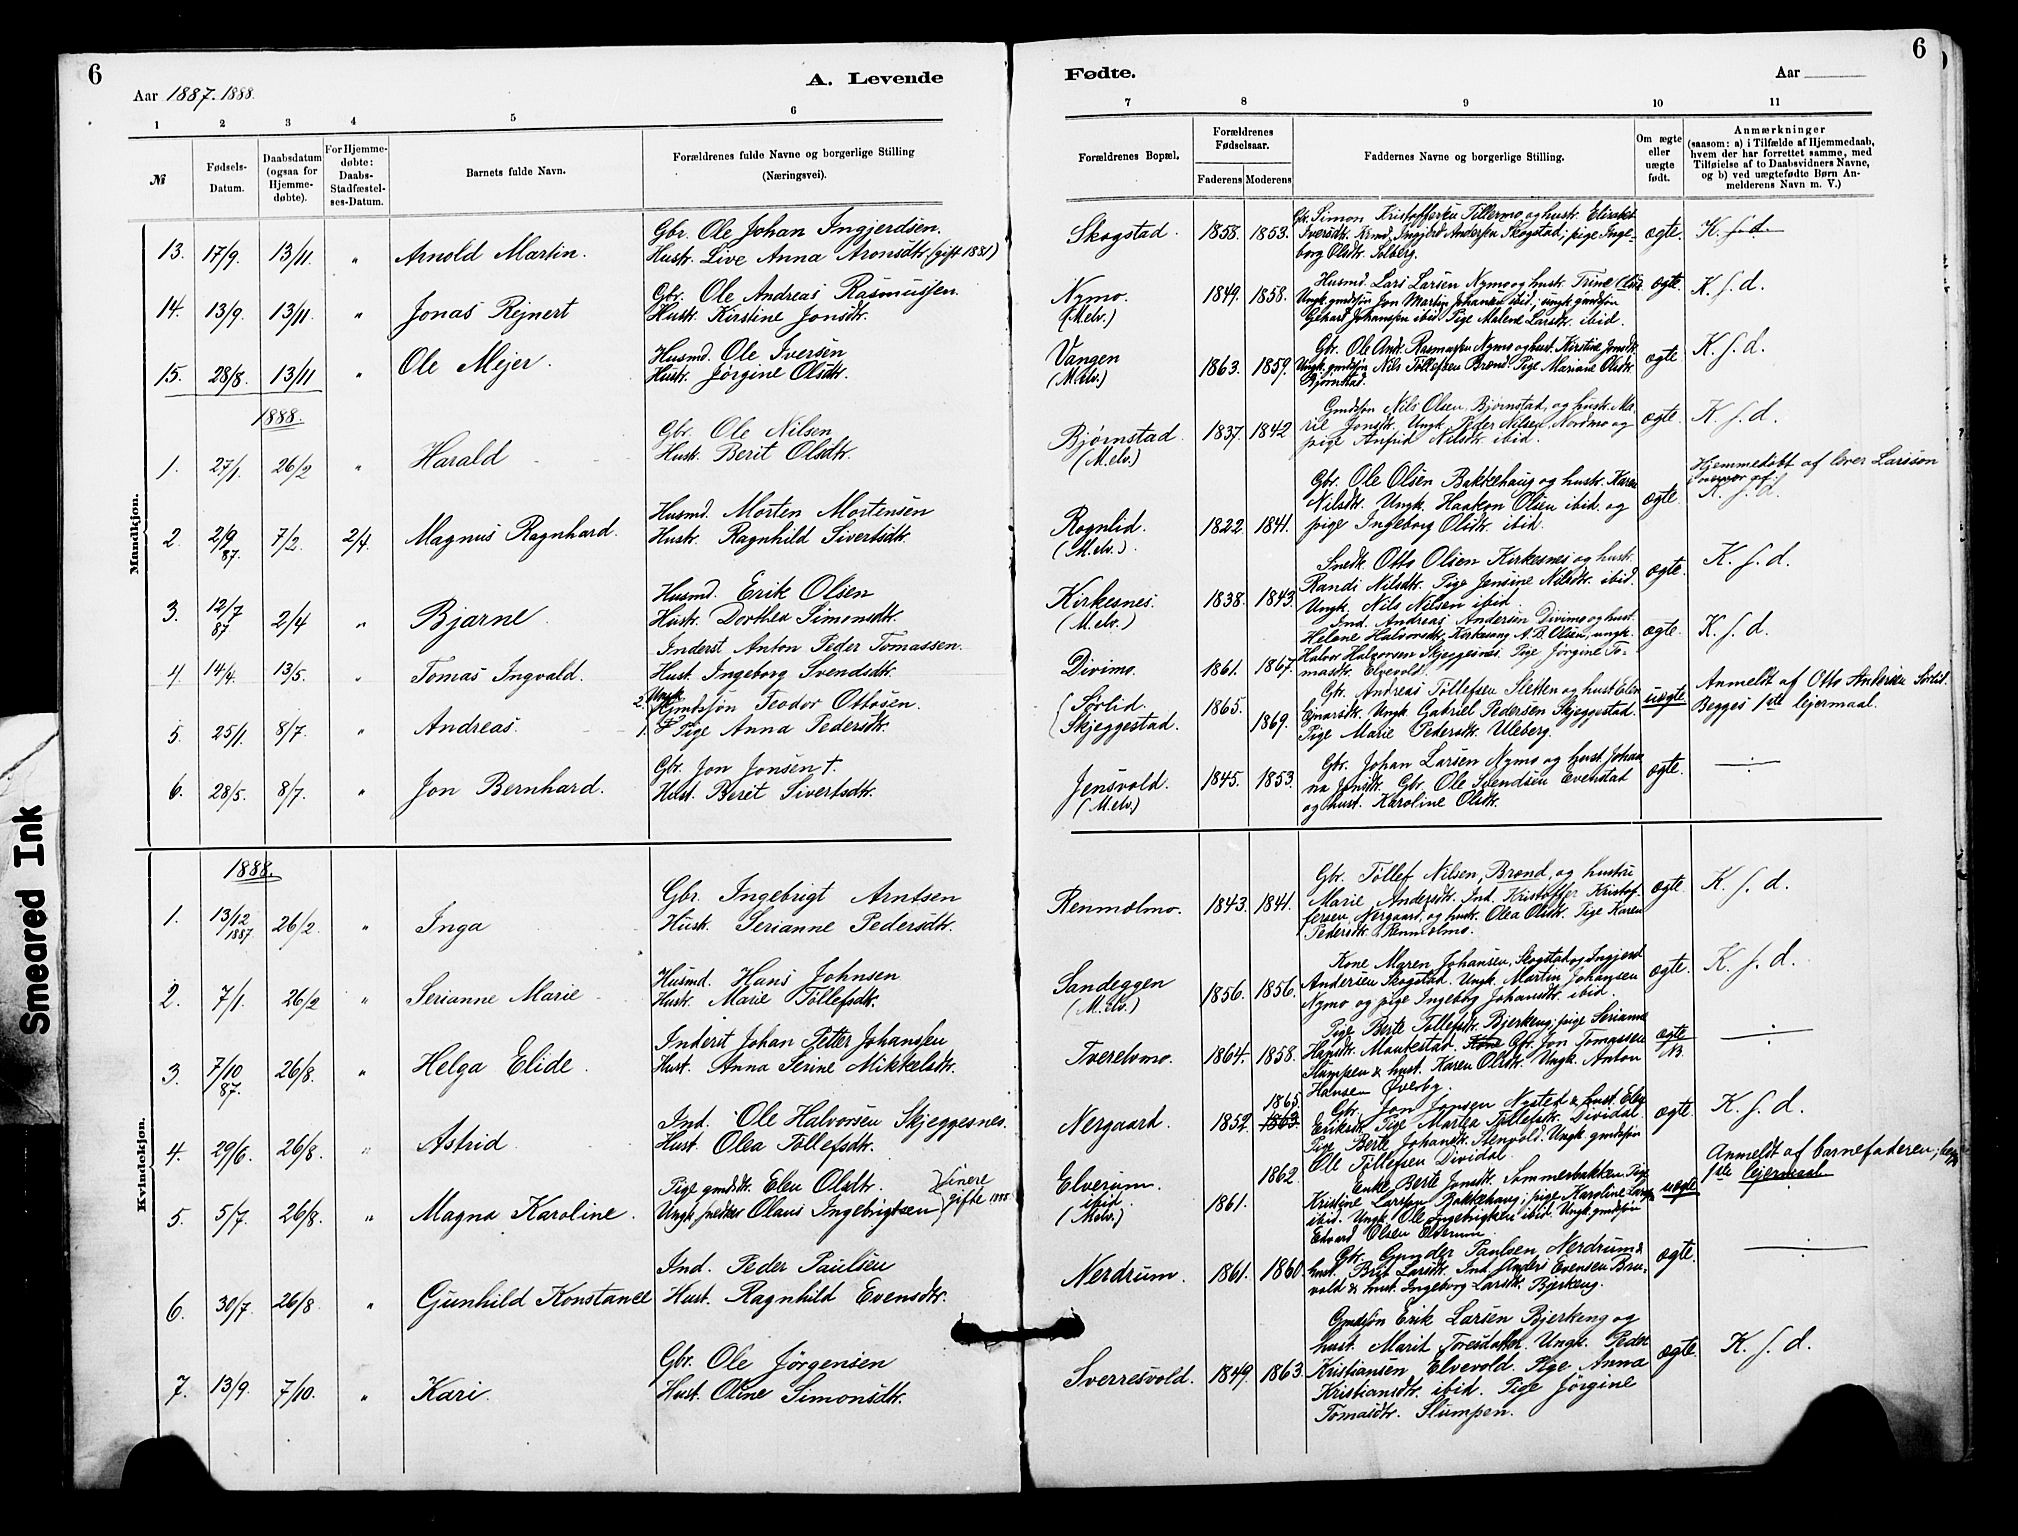 6
A. Levende
Aar 1887. 1888.
1 2 3 4 5 6
№
Fødsels-
Datum.
Daabsdatum
(ogsaa for
Hjemme-
døbte).
For Hjemme-
døbte:
Daabs-
Stadfæstel-
ses-Datum.
Barnets fulde Navn.
Forældrenes fulde Navne og borgerlige Stilling
(Næringsvei).
Mandkjøn.
13. 17/9. 13/11. " Arnold Martin.
Gbr. Ole Johan Ingjerdsen.
Hustr. Live Anna Aronsdtr. (gift 1881)
14. 13/9. 13/11. " Jonas Rejnert
Gbr. Ole Andreas Rasmussen.
Hustr. Kirstine Jonsdtr.
15. 28/8. 13/11 " Ole Mejer.
Husmd. Ole Iversen
Hustr. Jørgine Olsdtr.
1888.
1. 27/1. 26/2 " Harald
Gbr. Ole Nilsen
Hustr. Berit Olsdtr.
2. 2/9 87. 7/2. 2/4. Magnus Ragnhard.
Husmd. Morten Mortensen
Hustr. Ragnhild Sivertsdtr.
3. 12/7 87 2/4 " Bjarne
Husmd. Erik Olsen
Hustr. Dorthea Simonsdtr.
4. 14/4. 13/5. " Tomas Ingvald.
Inderst Anton Peder Tomassen.
Hust. Ingeborg Svendsdtr.
5. 25/1. 8/7. " Andreas.
2. Ungk. Gmdsøn Teodor Ottosen.
1. Pige Anna Pedersdtr.
6. 28/5. 8/7. " Jon Bernhard.
Gbr. Jon Jonsen †.
Hust. Berit Sivertsdtr.
Kvindekjøn.
1888.
1. 13/12 1887. 26/2. " Inga
Gbr. Ingebrigt Arntsen
Hustr. Serianne Pedersdtr.
2. 7/1. 26/2 " Serianne Marie
Husmd. Hans Johnsen
Hustr. Marie Tollefsdtr.
3. 7/10 87. 26/8. " Helga Elide.
Inderst Johan Petter Johansen
Hust. Anna Serine Mikkelsdtr.
4. 29/6. 26/8. " Astrid.
Ind. Ole Halvorsen Skjeggesnes.
Hust. Olea Tollefsdtr.
5. 5/7. 26/8. " Magna Karoline.
Pige gmdsdtr. Elen Olsdtr.
Ungk. snedker Olaus Ingebrigtsen } senere gifte 1888
6. 30/7. 26/8. " Gunhild Konstance
Ind. Peder Paulsen
Hust. Ragnhild Evensdtr.
7. 13/9. 7/10. " Kari.
Gbr. Ole Jørgensen
Hust. Oline Simonsdtr.
Fødte.
Aar
6
7 8 9 10 11
Forældrenes Bopæl.
Forældrenes
Fødselsaar.
Faderens Moderens
Faddernes Navne og borgerlige Stilling.
Om ægte
eller
uægte
født.
Anmærkninger
(saasom: a) i Tilfælde af Hjemmedaab,
hvem der har forrettet samme, med
Tilføielse af to Daabsvidners Navne,
og b) ved uægtefødte Børn An-
melderens Navn m. V.)
Skogstad. 1858. 1853.
Gbr. Simon Kristoffersen Tillermo og hustr. Elisabet
Iversdtr. Kmd. Ingjerd Andersen Skogstad; pige Inge-
borg Olsdtr. Solberg.
ægte. K. f. d.
Nymo. (Melv.) 1849. 1858.
Husmd. Lars Larsen Nymo og hustr. Trine
Ungk. gmdsøn Jon Martin Johansen ibid.; ungk. gmdsøn
Gehart Johansen ibid. Pige Malene Larsdtr. ibid.
ægte. K. f. d.
Vangen (Melv.) 1863. 1859.
Gbr. Ole Andr. Rasmussen Nymo og hust. Kirstine Jonsdtr.
Ungk. gmdsøn Nils Tollefsen Brænd. Pige Mariane Olsdtr.
Bjørnstad.
ægte. K. f. d.
Bjørnstad. (M.elv.) 1837. 1842
Gmdsøn Nils Olsen, Bjørnstad, og hustr. Ma-
ril Jonsdtr. Ungk. Peder Nilsen, Nordmo og
pige Anfrid Nilsdtr. ibid.
ægte. K. f. d.
Rognlid. (M.elv.). 1822 1841.
Gbr. Ole Olsen Bakkehaug og hustr. Karen
Nilsdtr. Ungk. Haakon Olsen ibid. og
pige Ingeborg Olsdtr. ibid.
ægte.
Hjemmedøbt af lærer Larsson
K. f. d.
Kirkesnes. (M.elv.) 1838. 1843.
Snedk. Otto Olsen Kirkesnes og hustr.
Randi Nilsdtr. Pige Jensine Nilsdtr. ibid.
Ungk. Nils Nilsen ibid.
ægte. K. f. d.
Divimo. 1861. 1867.
Ind. Andreas Andersen Divimo og hust.
Helene Halvorsdtr. Kirkesang. A. B. Olsen, ungk.
Halvor Halvorsen Skjeggesnes. Pige Jørgine To-
masdtr. Elvevold.
ægte. K. f. d.
{ Sørlid. Skjeggestad. 1865. 1869.
Gbr. Andreas Tollefsen Sletten og hust Elen
Ejnarsdtr. Ungk. Gabriel Pedersen Skjeggestad.
Pige Marie Pedersdtr. Uleberg.
uægte.
Anmeldt af Otto Andersen Sørlid.
Begges 1ste lejermaal.
Jensvold. (M.elv.) 1845. 1853.
Gbr. Johan Larsen Nymo og hust. Johan
na Jonsdtr. Gbr. Ole Svendsen Evenstad
og hust. Karoline Olsdtr.
ægte.
Renmolmo. 1843. 1841.
Gbr. Tollef Nilsen, Brænd, og hustru
Marie Andersdtr. Ind. Kristoffer Kristof-
fersen, Nergaard, og hustr. Olea Olsdtr. Pige Karen
Pedersdtr. Renmolmo.
ægte. K. f. d.
Sandeggen (M.elv.) 1856. 1856.
Kone Maren Johansen, Skogstad og Ingjerd
Andersen Skogstad. Ungk. Martin Johansen
Nymo og pige Ingeborg Johansdtr. ibid.
ægte. K. f. d.
Tverelvmo. 1864. 1858.
Pige Berte Tollefsdtr. Bjerkeng; pige Serianne
Hansdtr. Maukestad. Kone Gbr. Jon Tomassen
Slumpen & hust. Karen Olsdtr. Ungk. Anton
Hansen Øverby.
ægte NB.
Nergaard. 1852. 1865. 1863.
Gbr. Jon Jonsen Nysted & hust. Elen
Eriksdtr. Pige Martea Tollefsdtr. Dividal.
Pige Berte Johansdtr. Stenvold. Ungk. gmdsøn
Ole Tollefsen Dividal.
ægte. K. f. d.
Elverum. ibid. (Melv.) 1861. 1862
Enke Berte Jonsdtr. Sommerbakken. Pige
Kristine Larsen Bakkehaug; pige Karoline Larsen
ibid. Ungk. Ole Ingebrigtsen ibid. Ungk. gmdsøn
Edvard Olsen Elverum.
uægte
Anmeldt af barnefaderen;
1ste lejermaal.
Nerdrum. 1861. 1860.
Gbr. Gunder Paulsen Nerdrum &
hust. Brit Larsdtr. Ind. Anders Evensen Bru-
vold & hust. Ingeborg Larsdtr. Bjerkeng.
ægte.
Sverresvold. 1849. 1863.
Gmdsøn Erik Larsen Bjerkeng og
hust. Marit Toresdatter. Ungk. Peder
Kristiansen Elvevold. Pige Anna
Kristiansdtr. ibid. Pige Jørgine
Tomasdtr. Slumpen.
ægte. K. f. d.
Smeared Ink